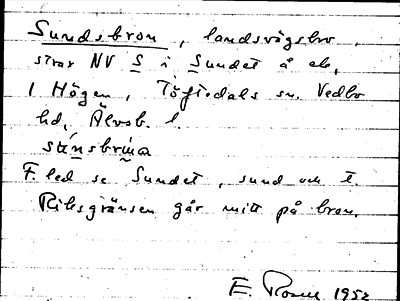 Sundsbron, landsvägsbro
strax NV S i Sundet å ek,
1 Högen, Töftedals sn. Vedbo
hd, Älvsb. l.
F. led se Sundet, sund och t.
Riksgränsen går mitt på bron.
E. 1952